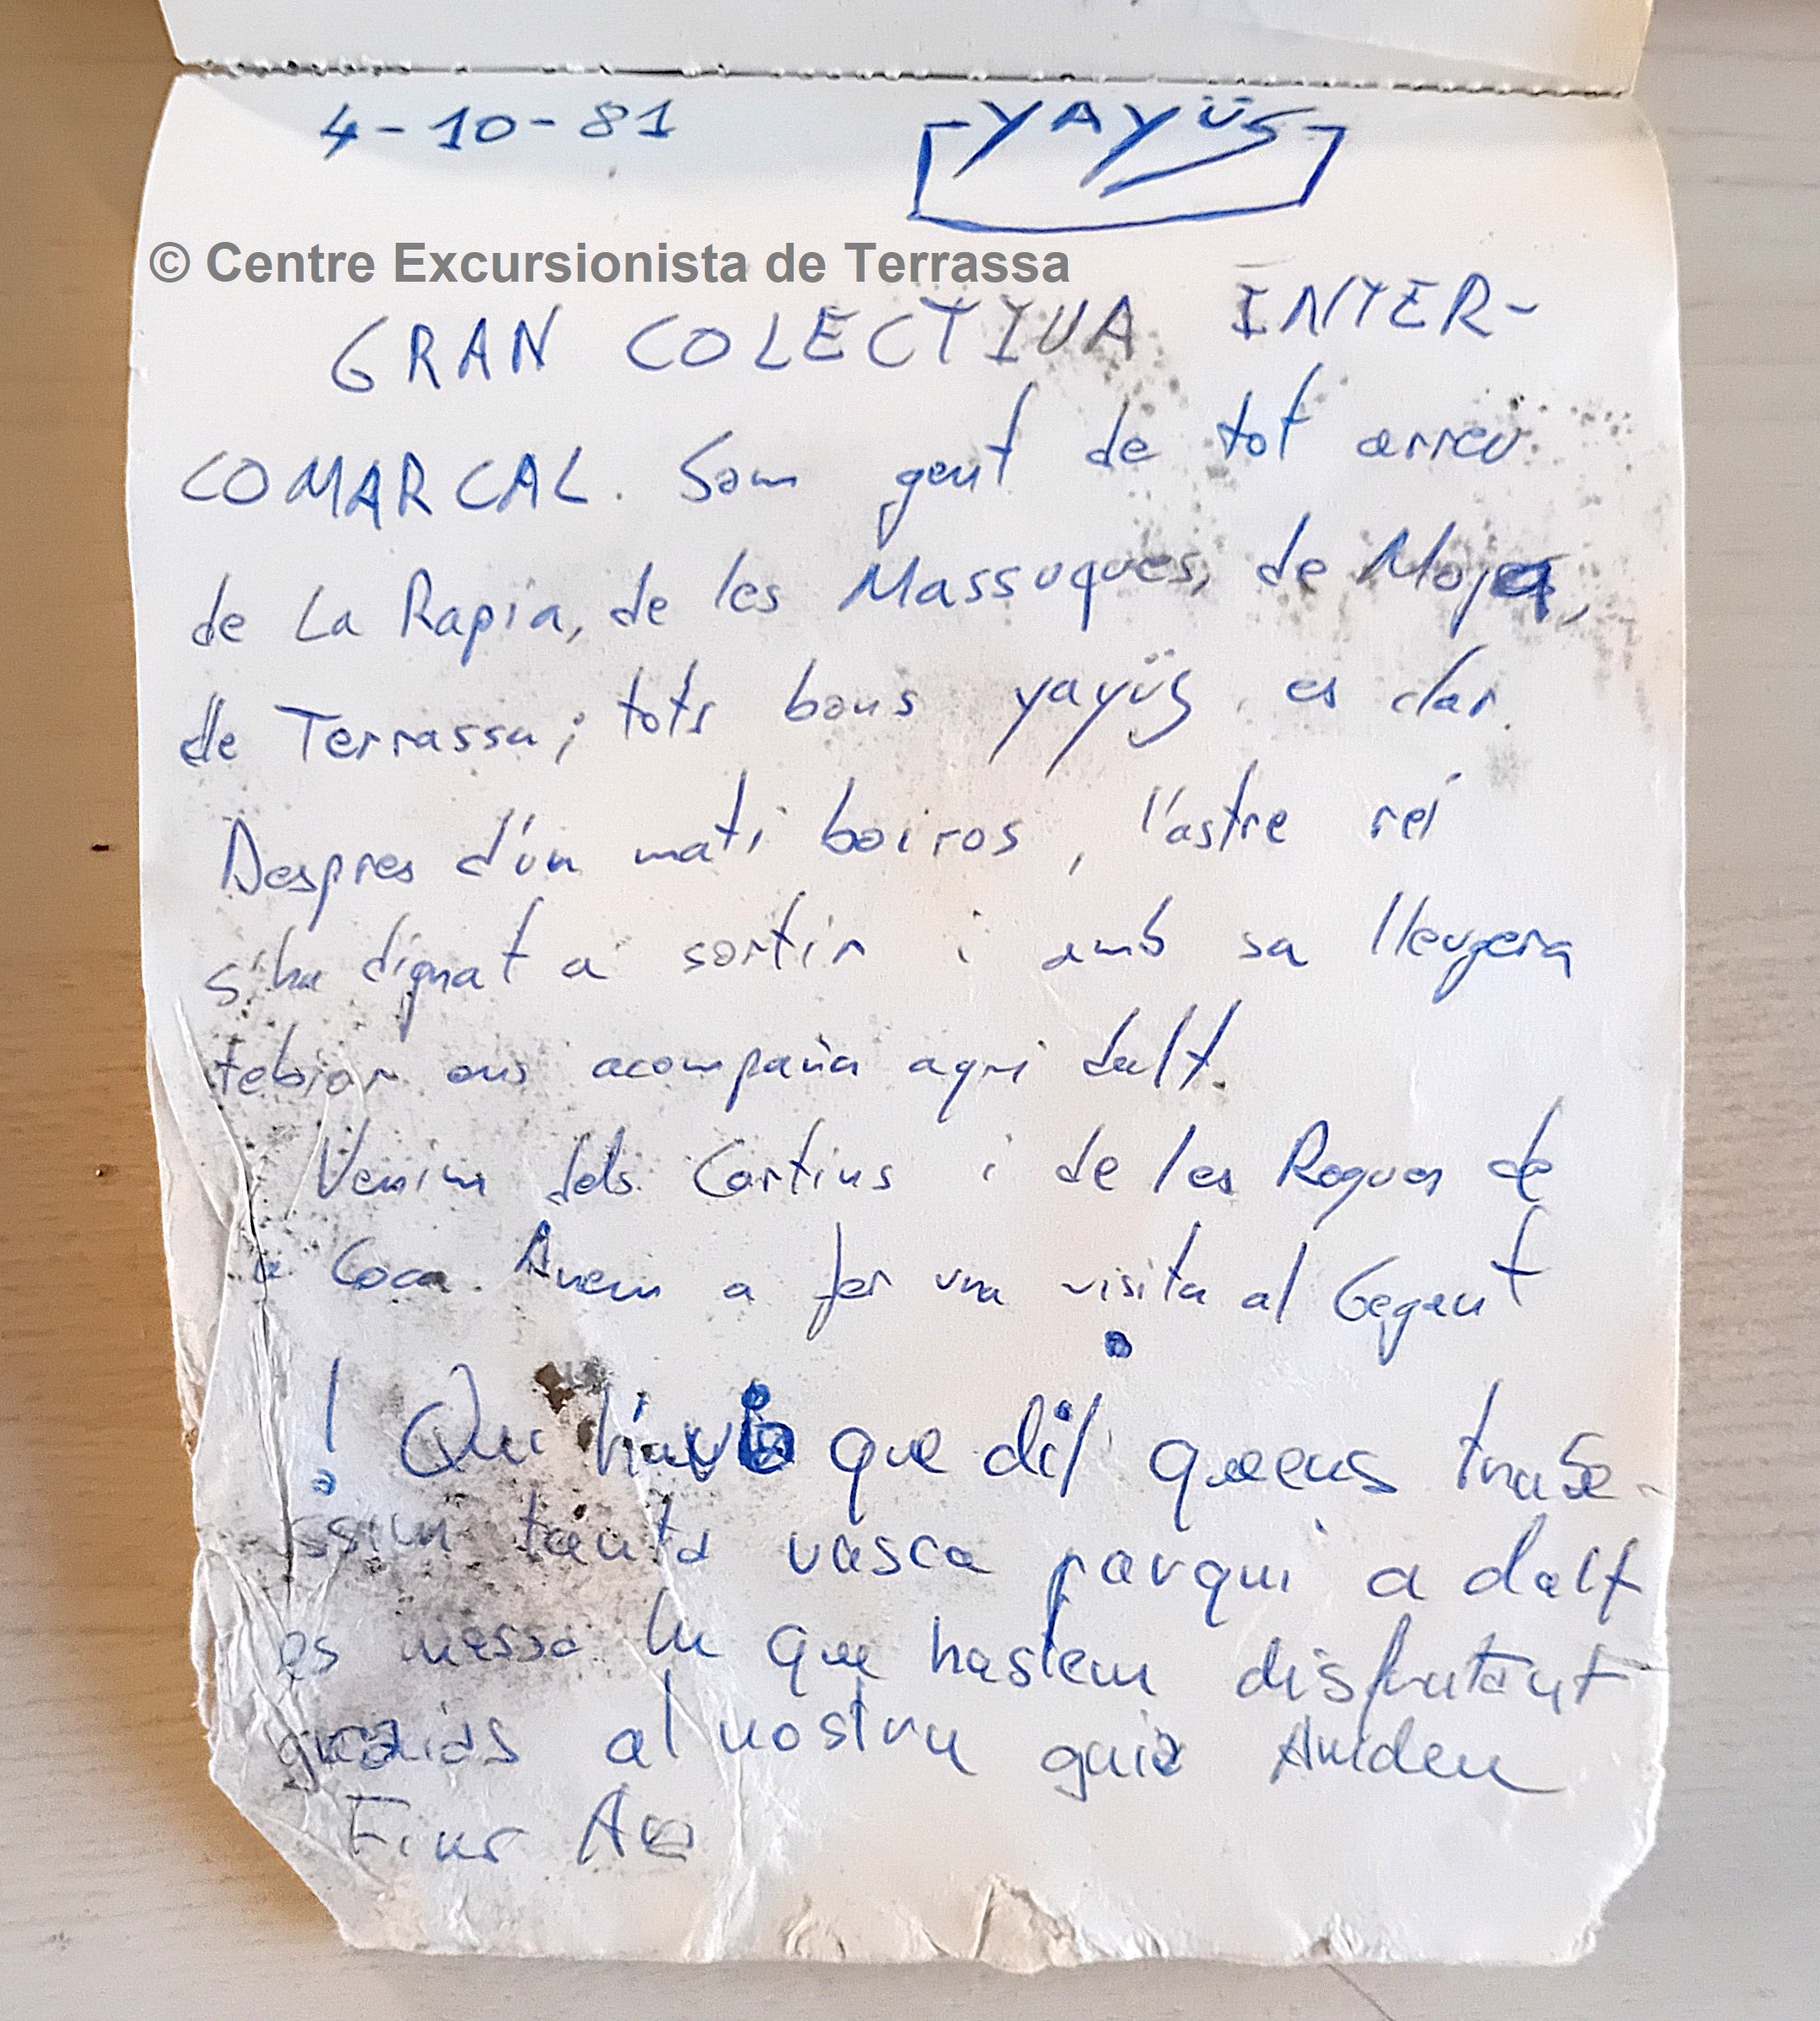 4-10-81 YAYÜS
© Centre Excursionista de Terrassa
GRAN COLECTIVA INTER-
COMARCAL. Som gent de tot arreu
de La Rapia, de les Massuques, de Moja,
de Terrassa; tots bons yayüs, es clar.
Despres d'un mati boiros, l'astre rei
s'ha dignat a sortir i amb sa lleugera
tebior ens acompaña aqui dalt.
Venim dels Cortius i de les Roques de
la Coca. Anem a fer una visita al Gegent
! Qui que queens trube-
ssim tanta vasca parqui a dalt
es messa lu que hastem disfrutant
grasias al nostru guia
Fins